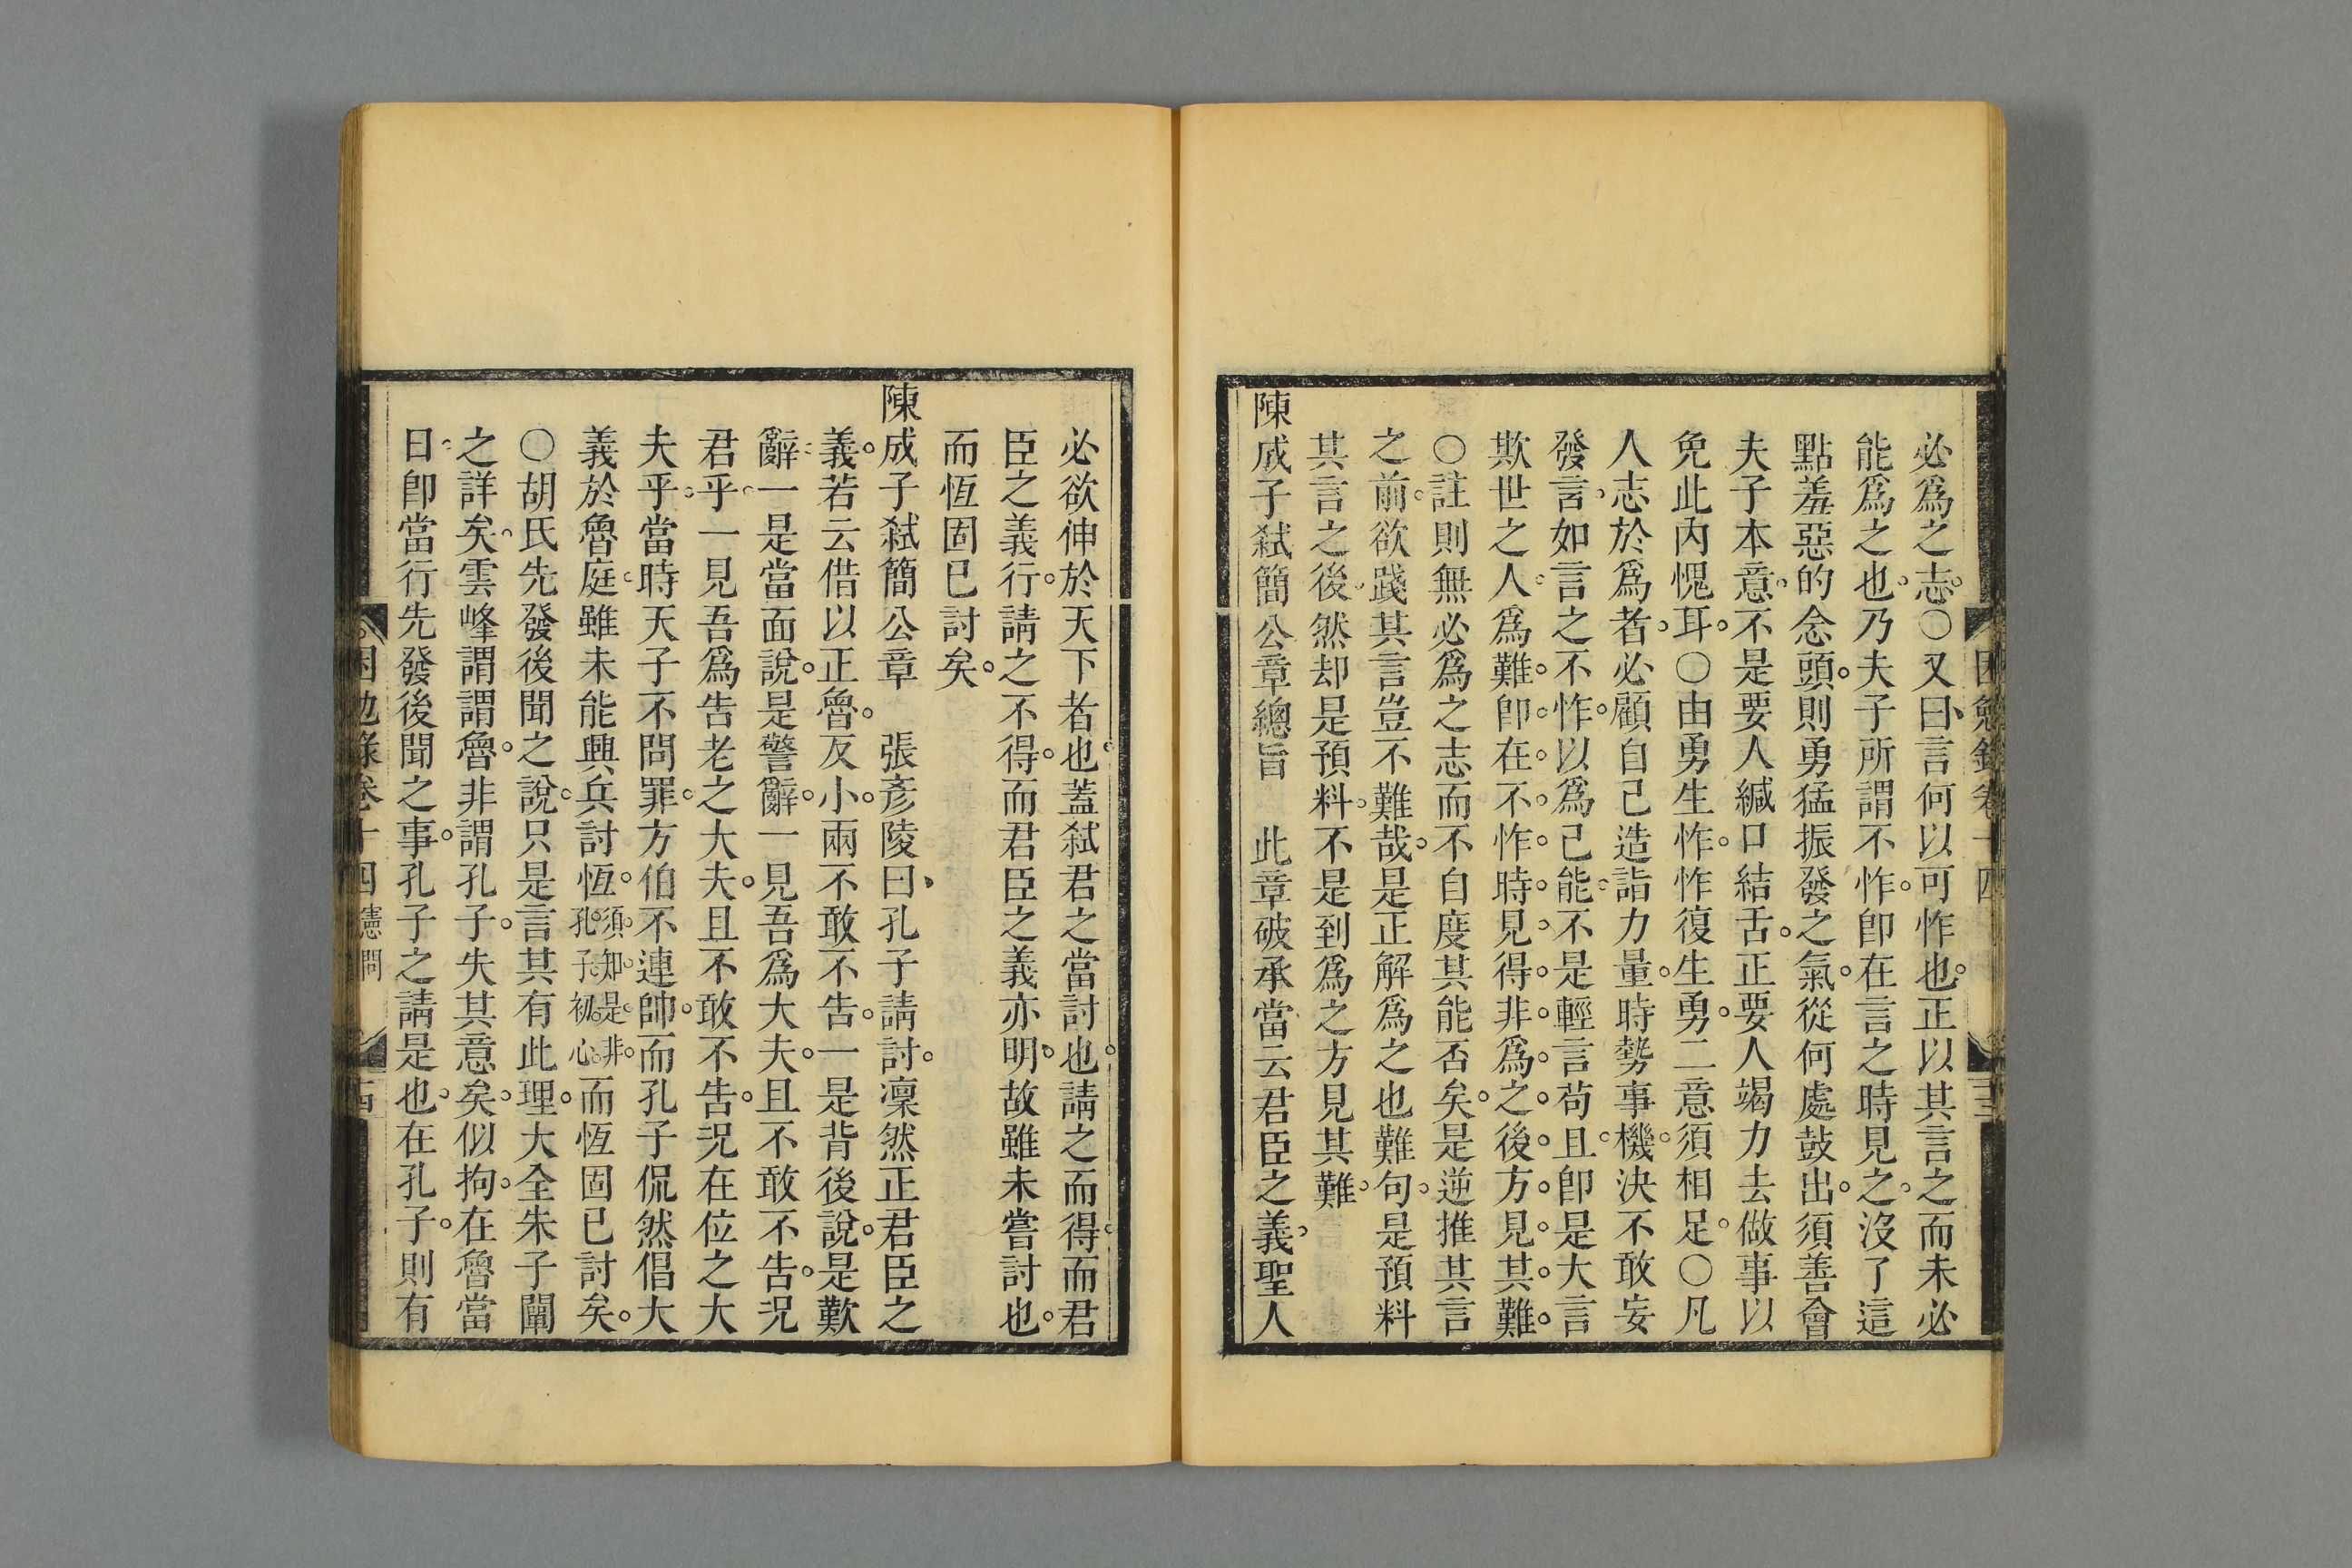 必爲之志○又曰言何以可怍也正以其言之而未必
能爲之也乃夫子所謂不怍卽在言之時見之沒了這
點羞惡的念頭則勇猛振發之氣從何處鼓出須善會
夫子本意不是要人緘口結舌正要人竭力去做事以
免此內愧耳○由勇生怍怍復生勇二意須相足○凡
人志於爲者必顧自己造詣力量時勢事機決不敢妄
發言如言之不怍以爲己能不是輕言苟且卽是大言
欺世之人爲難卽在不怍時見得非爲之後方見其難
○註則無必爲之志而不自度其能否矣是逆推其言
之前欲踐其言豈不難哉是正解爲之也難句是預料
其言之後然却是預料不是到爲之方見其難
陳成子弑簡公章總旨　此章破承當云君臣之義聖人
必欲伸於天下者也蓋弑君之當討也請之而得而君
臣之義行請之不得而君臣之義亦明故雖未嘗討也
而恆固已討矣
陳成子弑簡公章　張彥陵曰孔子請討凜然正君臣之
義若云借以正魯反小兩不敢不告一是背後說是歎
辭一是當面說是警辭一見吾爲大夫且不敢不告況
君乎一見吾爲告老之大夫且不敢不告況在位之大
夫乎當時天子不問罪方伯不連帥而孔子侃然倡大
義於魯庭雖未能興兵討恆須知是非孔子初心而恆固已討矣
○胡氏先發後聞之說只是言其有此理大全朱子闡
之詳矣雲峰謂謂魯非謂孔子失其意矣似拘在魯當
日卽當行先發後聞之事孔子之請是也在孔子則有
困勉錄卷十四 憲問